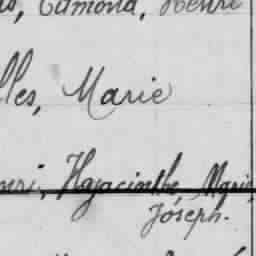 Edmond, Henri
lles, Marie
nri, Hyacinthe, Marie,
Joseph.